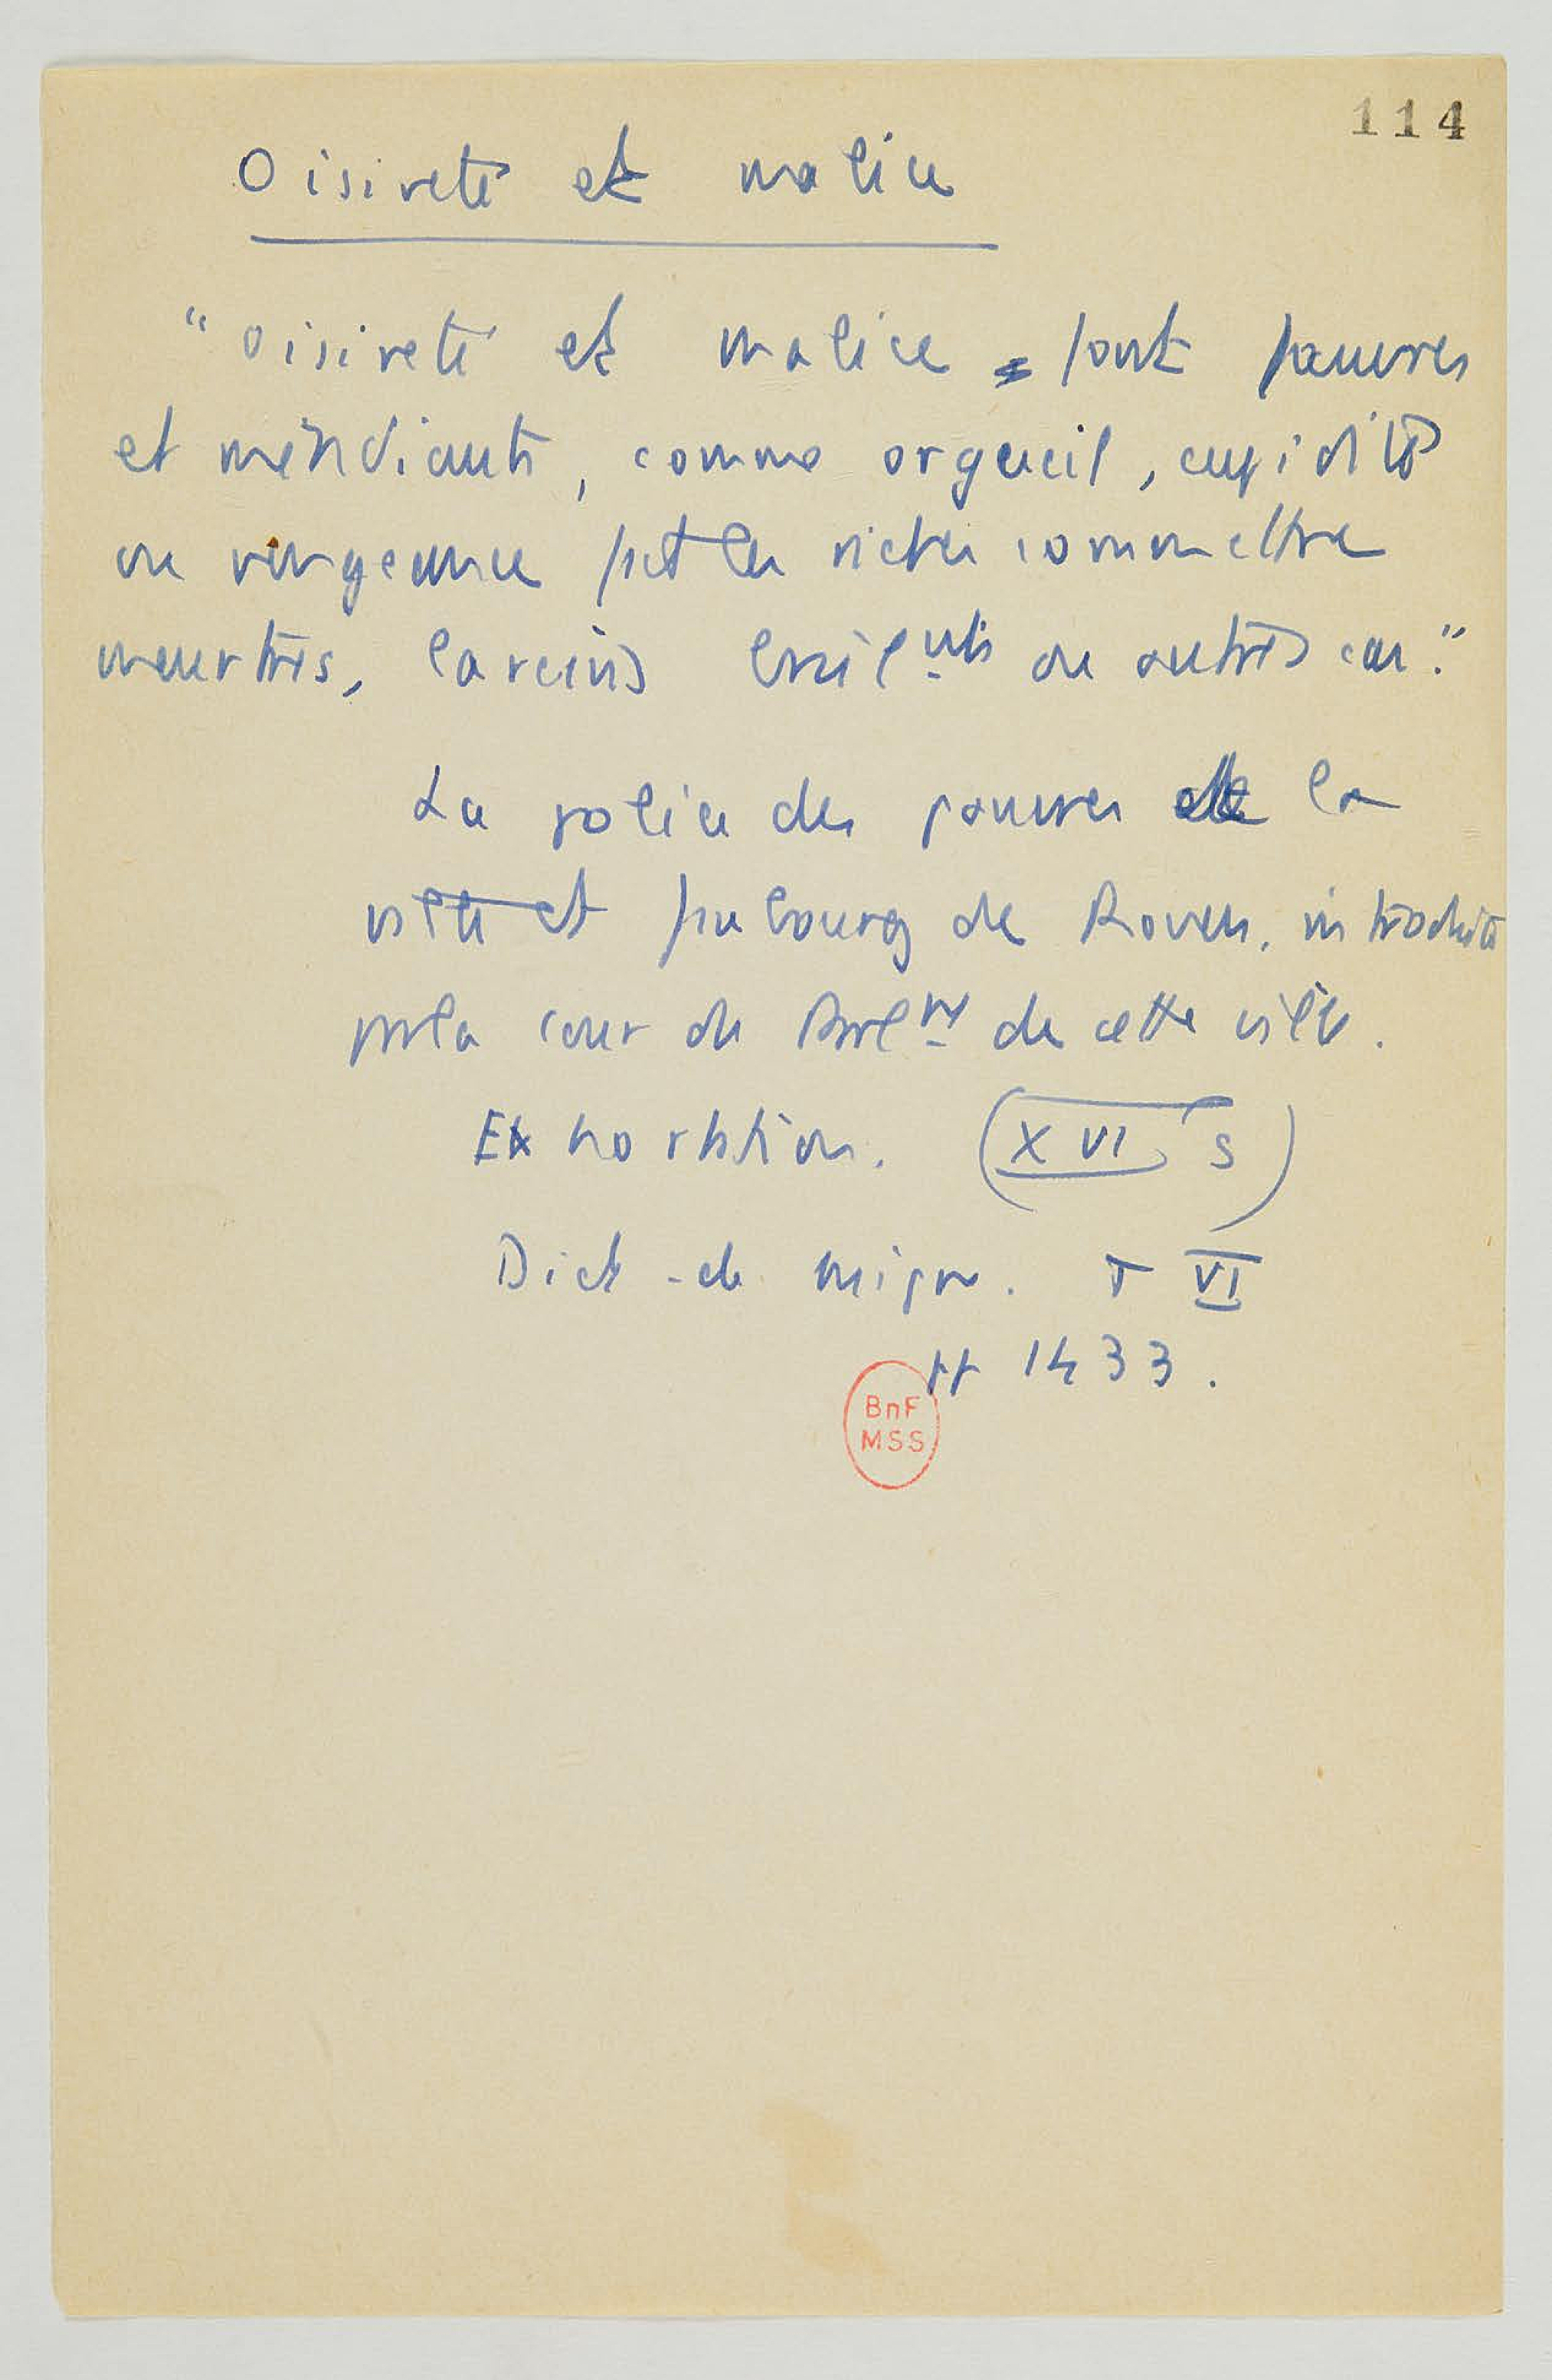 114
Oisiveté et malice
"Oisiveté et malice font pauvres
et mendiants, comme orgueil, cupidité
ou vengeance fut les riches commettre
meurtres, larcins ou autres cas."
La police des pauvres de la
ville et fubourg de Rouen, introduite
par la cour de Parl<sup>nt</sup> de cette ville.
Exhortation. (XVI s)
Dict. de Migne. T VI
pp 1433.
BnF
MSS